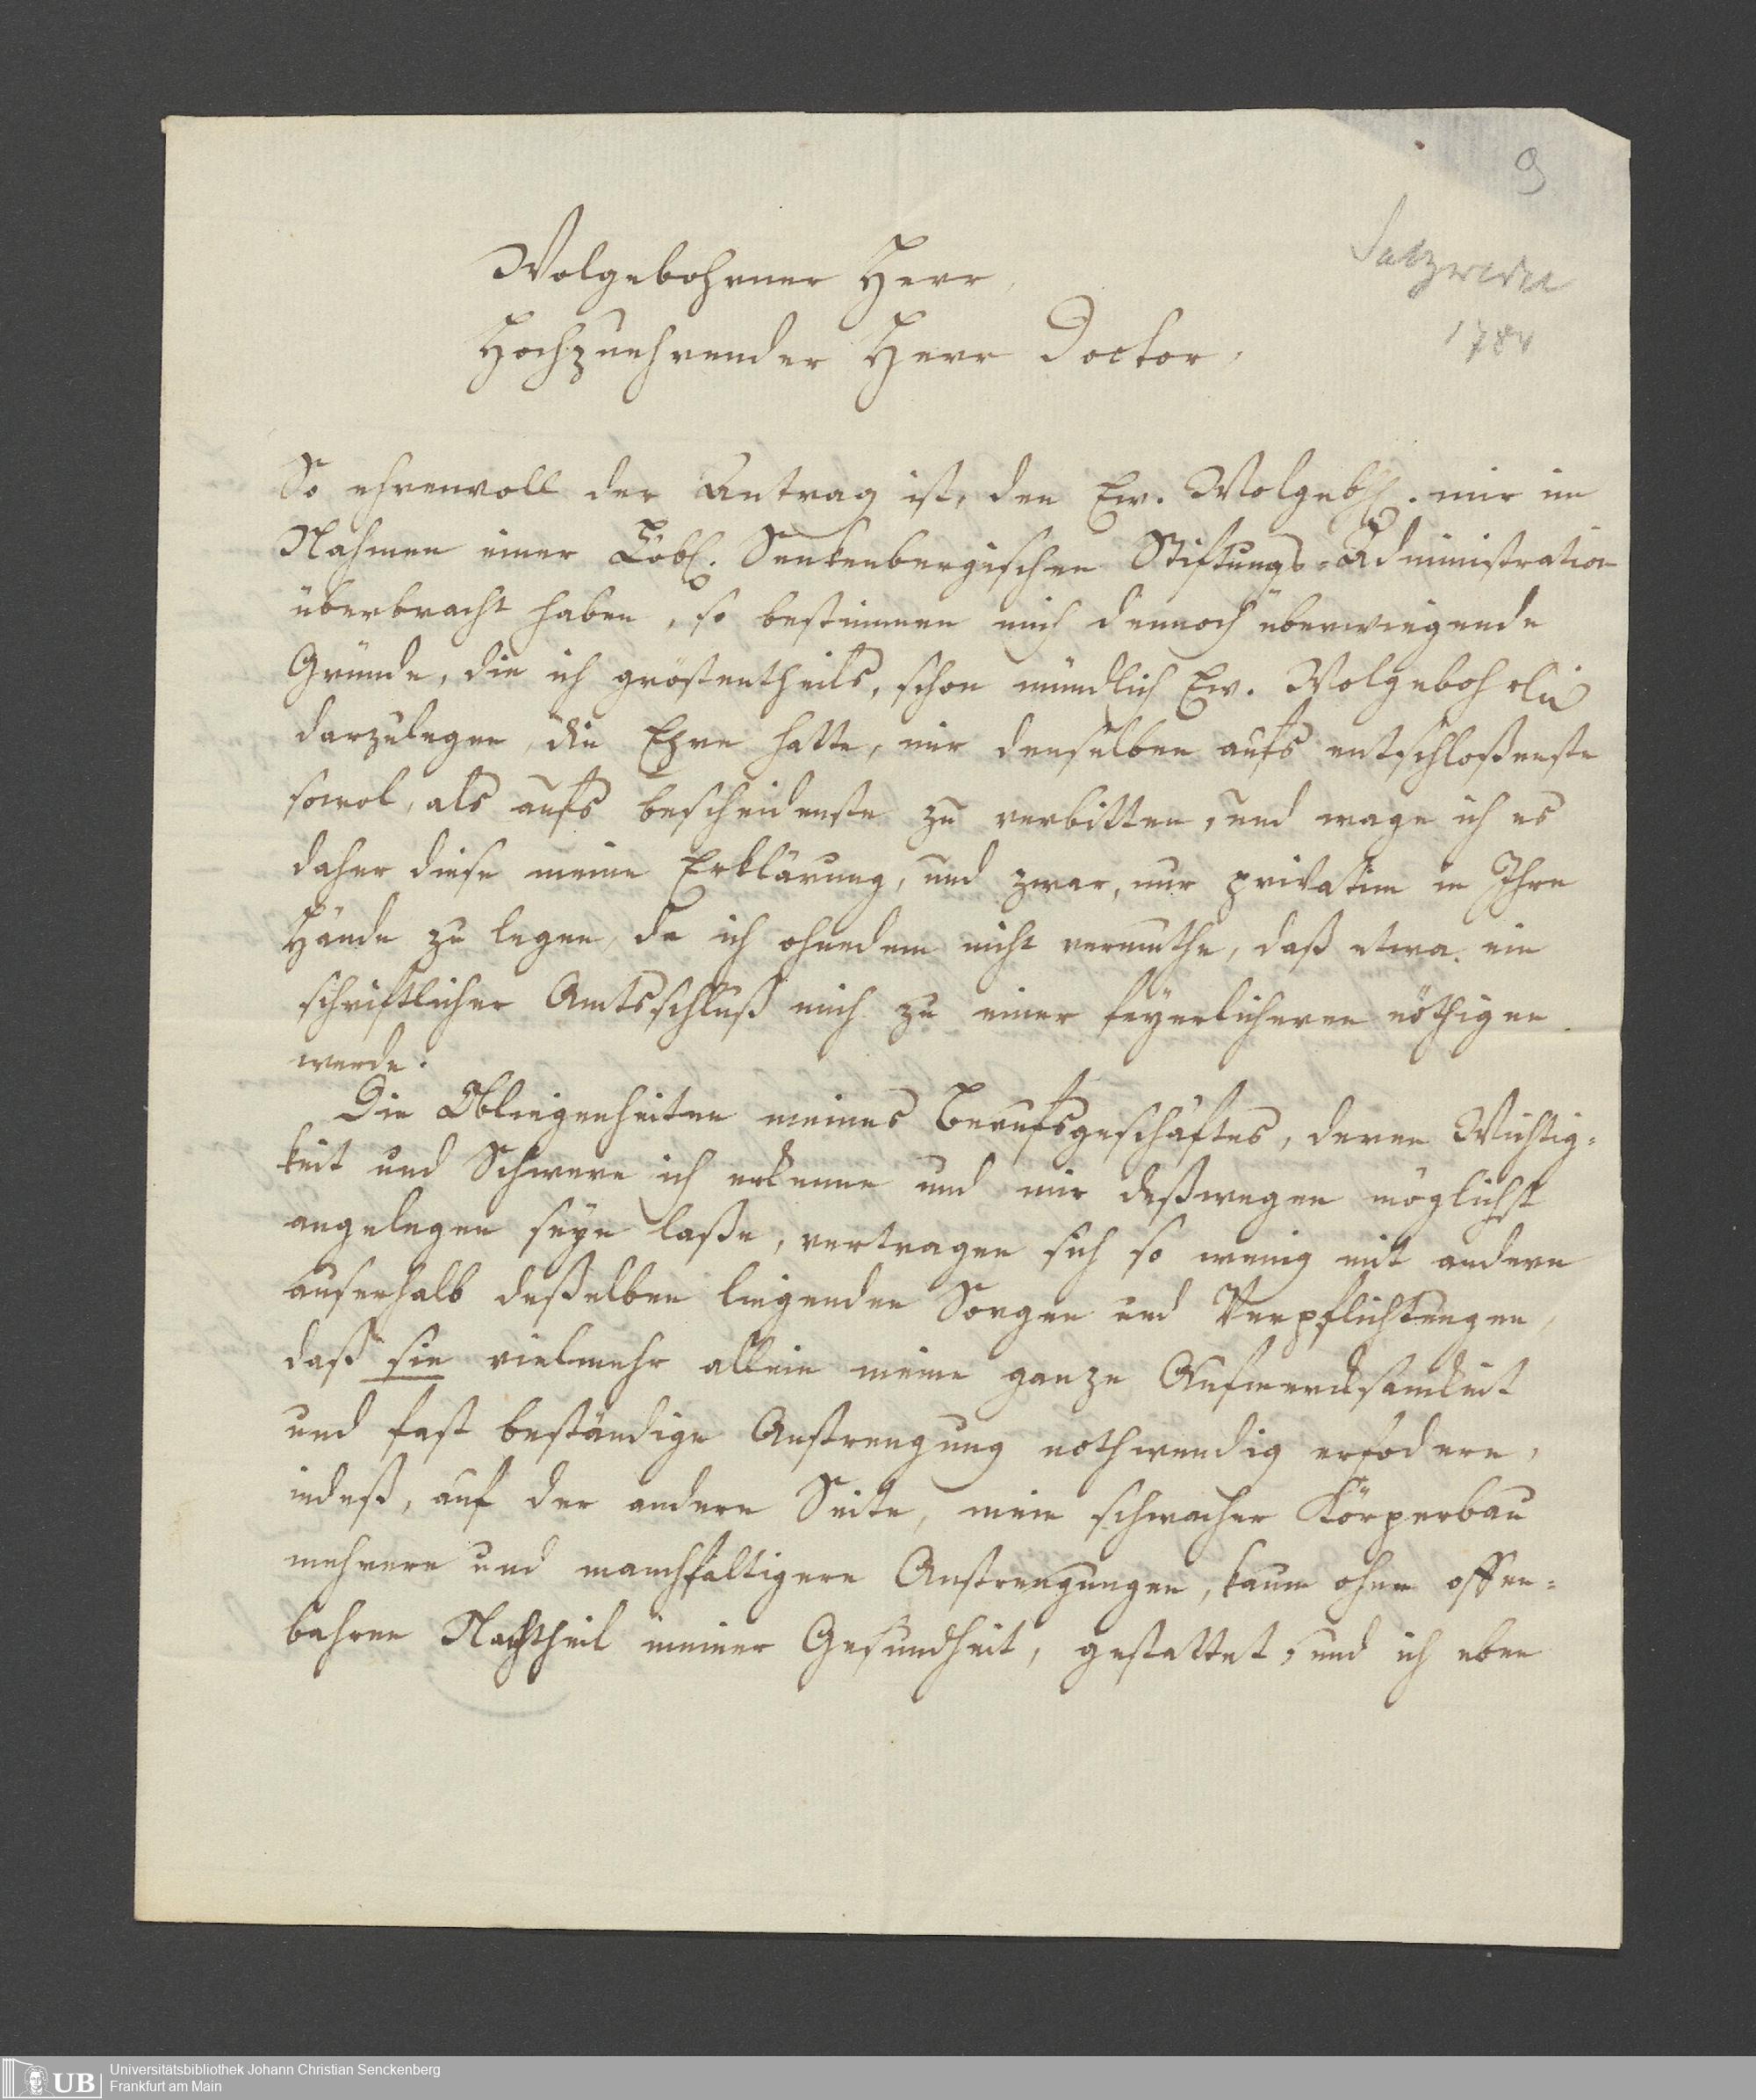 9
Salzwedel
1784
Wolgebohrner Herr,
Hochzuehrender Herr Doctor,
So ehrenvoll der Antrag ist, den Ew. Wolgeb. mir im
Nahmen einer Löbl. Senkenbergischen Stiftungs-Administration
überbracht haben, so bestimmen mich dennoch überwiegende
Gründe, die ich gröstentheils, schon mündlich Ew. Wolgeboh
darzulegen, die Ehre hatte, mir denselben aufs entschloßenste
sowol, als aufs bescheidenste zu verbitten, und wage ich es
daher diese meine Erklärung, und zwar, nur privatim in Ihre
Hände zu legen, da ich ohnedem nicht vermuthe, daß etwa ein
schriftlicher Amtsschluß mich zu einer feyerlicheren nöthigen
werde.
Die Obliegenheiten meines Berufsgeschäftes, deren Wichtig-
keit und Schwere ich erkenne und mir deßwegen möglichst
angelegen seyn laße, vertragen sich so wenig mit andern
auserhalb deßelben liegenden Sorgen und Verpflichtungen,
daß sie vielmehr allein meine ganze Aufmerksamkeit
und fast beständige Anstrengung nothwendig erfodern,
indeß, auf der andern Seite, mein schwacher Körperbau
mehrere und manchfaltigere Anstrengungen, kaum ohne offen-
bahren Nachtheil meiner Gesundheit, gestattet, und ich eben
UB
Universitätsbibliothek Johann Christian Senckenberg
Frankfurt am Main